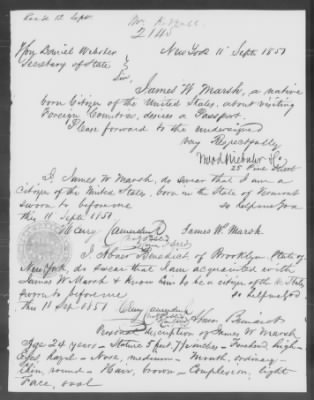 Rec'd 12 Sept.
2145
New York 11 Sept 1851
Hon Daniel Webster
Secretary of State
Sir,
James W. Marsh, a native
born Citizen of the United States, about visiting
Foreign Countries, desires a Passport.
Please forward to the undersigned
Very Respectfully
25 Pine Street
I, James W Marsh, do swear that I am a
Citizen of the United States, born in the State of Vermont
sworn to before me so help me God
this 11 Sept 1851
James W. Marsh
I, Abner Benedict of Brooklyn, State of
New York, do swear that I am acquainted with
James W Marsh & know him to be a citizen of the U. States
sworn to before me so help me God
this 11 Sep 1851
Abner Benedict
Personal description of James W Marsh
Age 24 years - Stature 5 feet 7 1/2 inches - Forehead, high -
Eyes, hazel - Nose, medium - Mouth, ordinary -
Chin, round - Hair, brown - Complexion, light
Face, oval